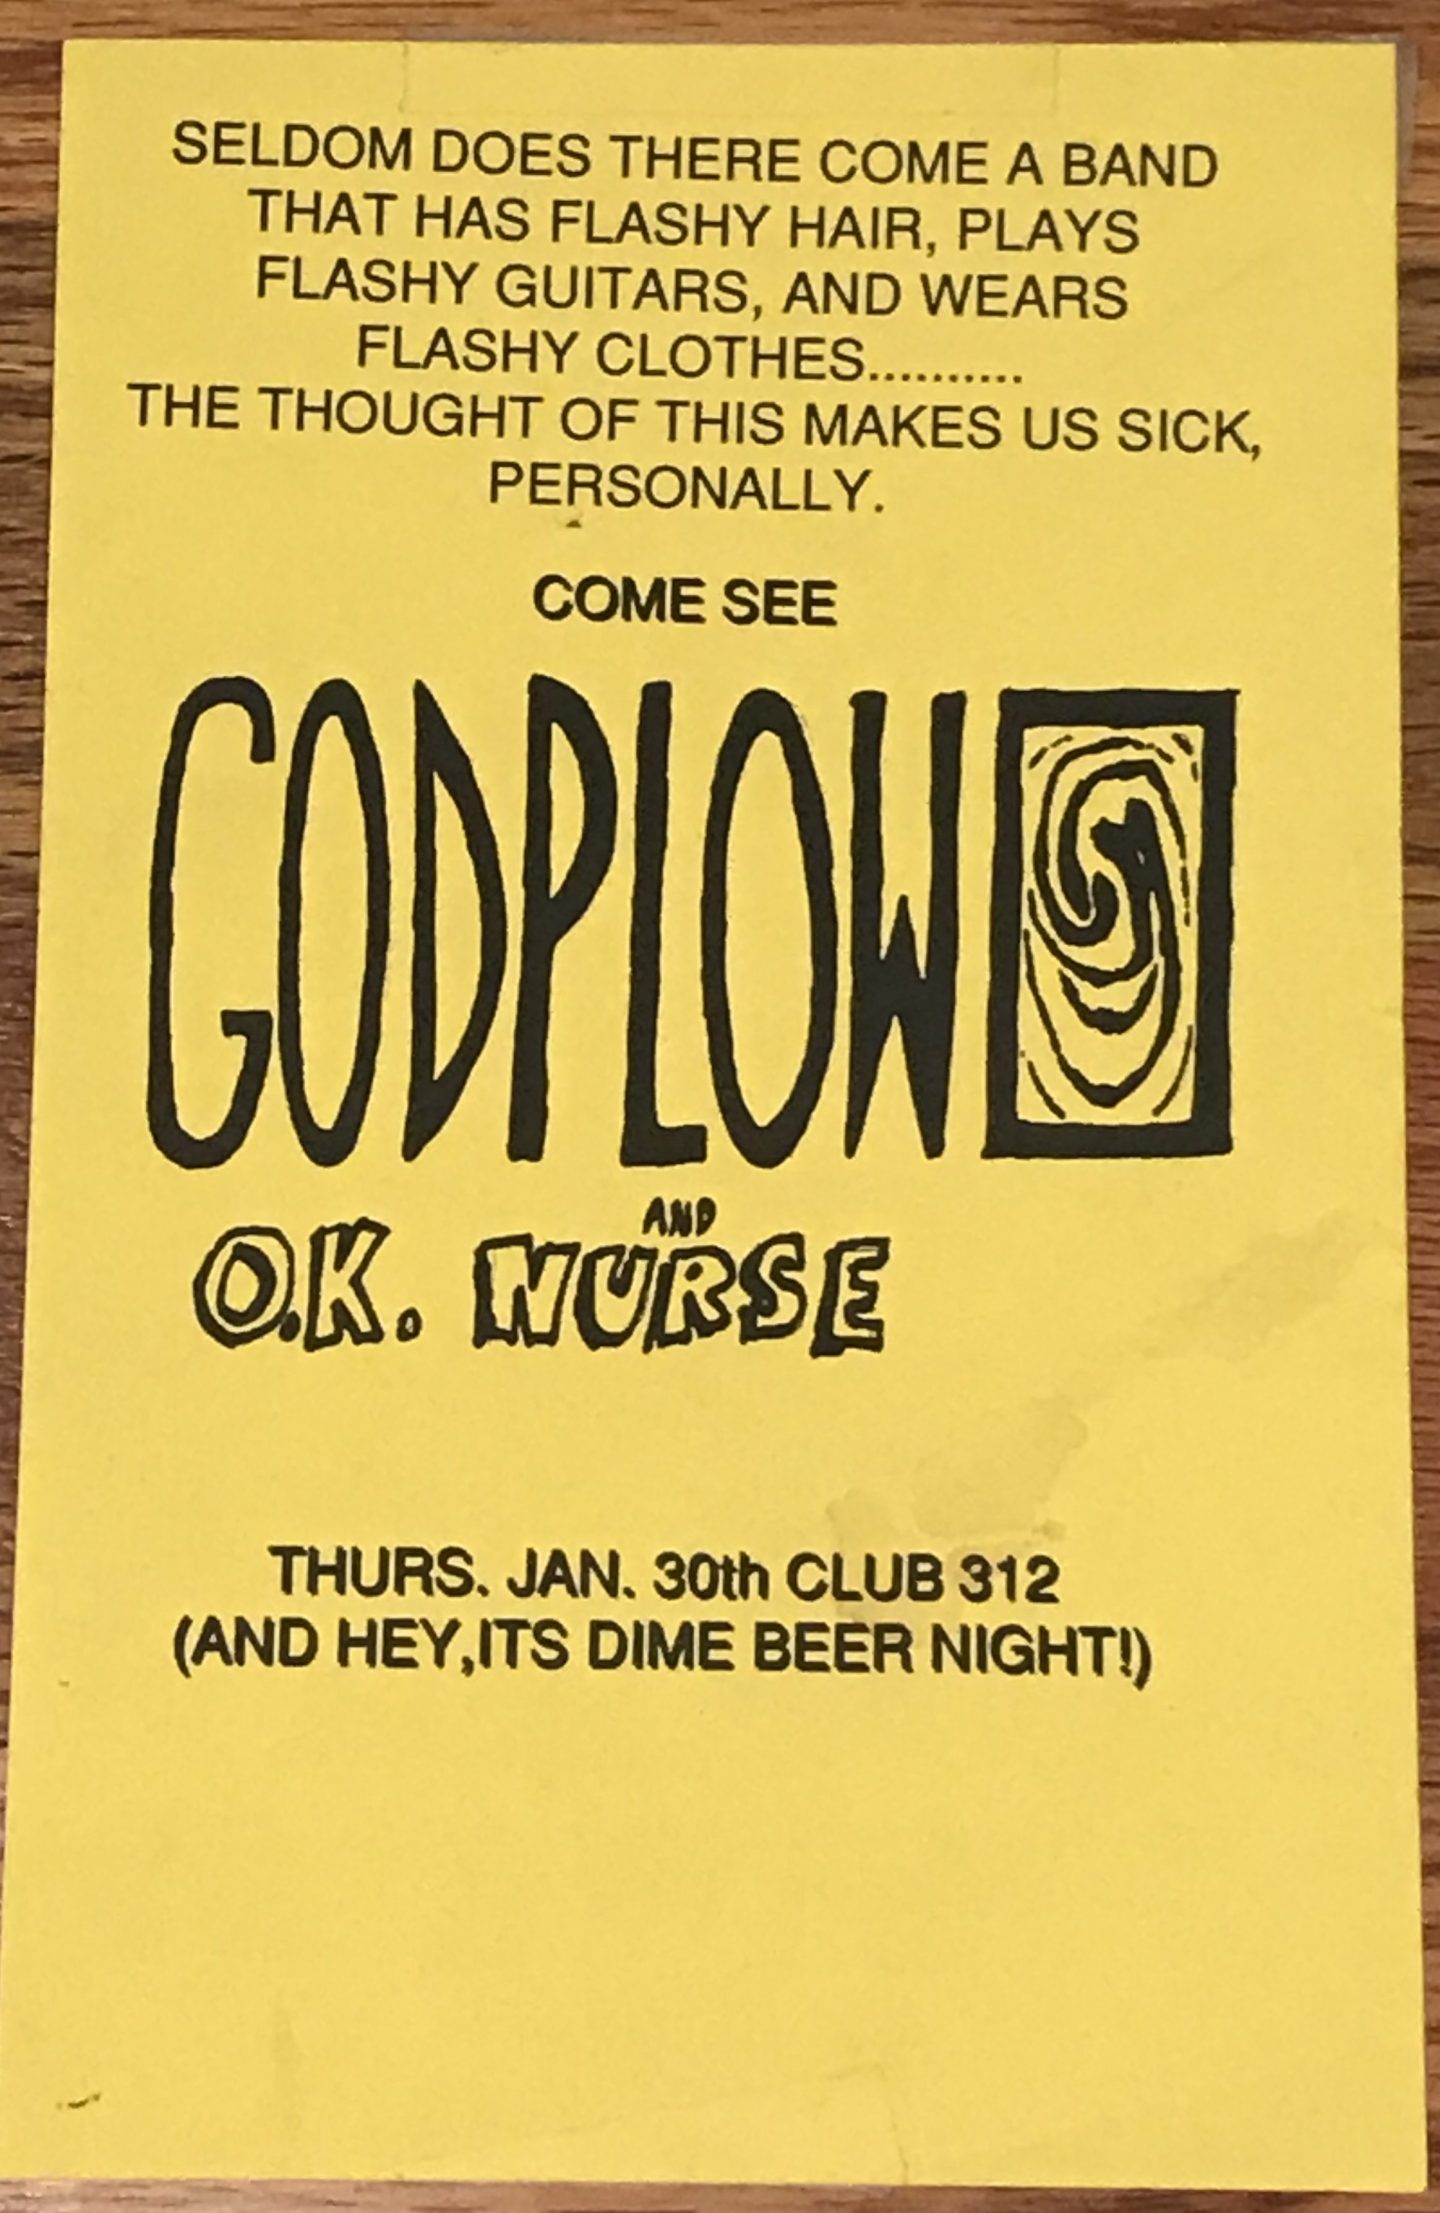 SELDOM DOES THERE COME A BAND
THAT HAS FLASHY HAIR, PLAYS
FLASHY GUITARS, AND WEARS
FLASHY CLOTHES..........
THE THOUGHT OF THIS MAKES US SICK,
PERSONALLY.
COME SEE
GODPLOW
AND
O.K. NURSE
THURS. JAN. 30th CLUB 312
(AND HEY,ITS DIME BEER NIGHT!)